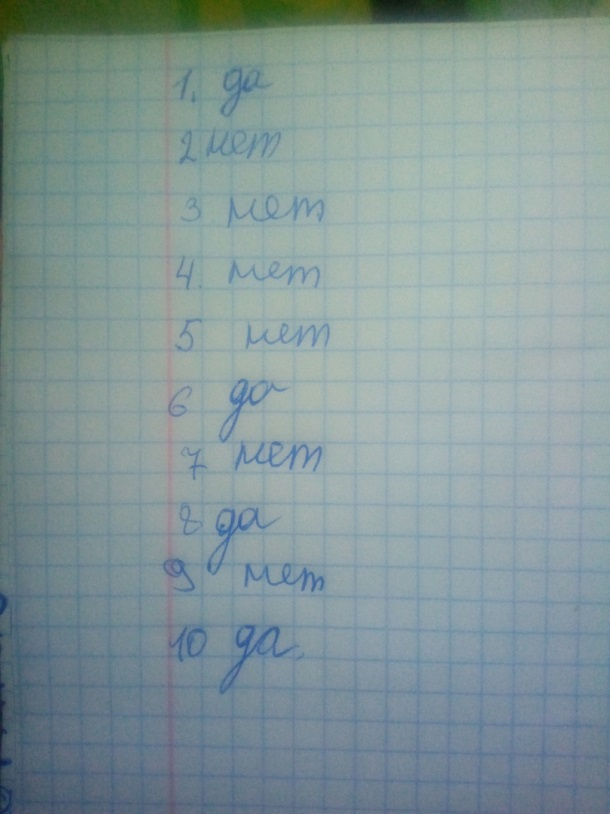 1. да
2 нет
3 нет
4. нет
5 нет
6 да
7 нет
8 да
9 нет
10 да.